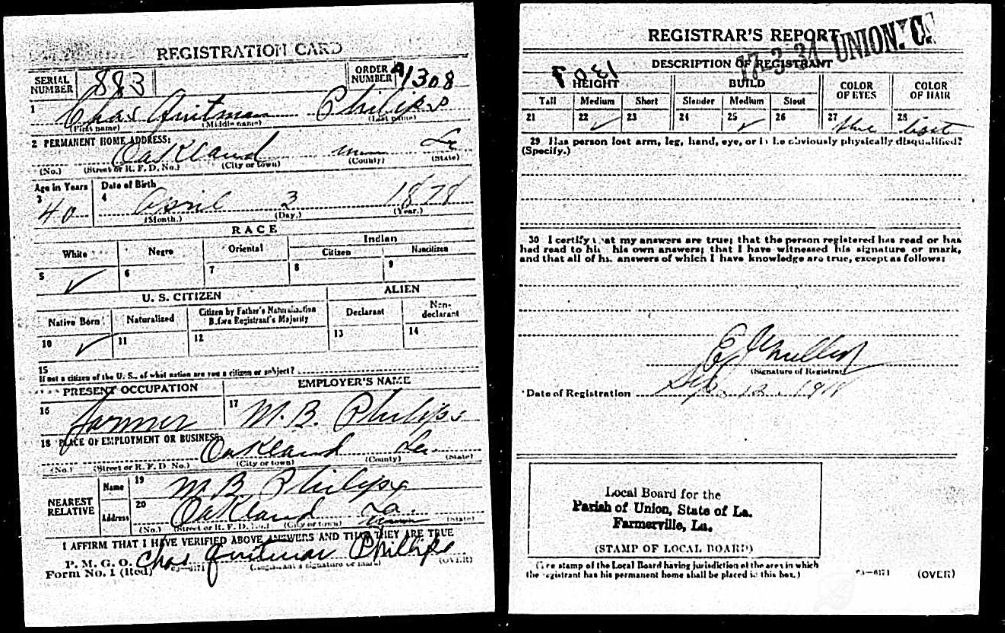 REGISTRATION CARD
SERIAL NUMBER 883 ORDER NUMBER A1308
1 Chas Quitman Philips
(First name) (Middle name) (Last name)
2 PERMANENT HOME ADDRESS:
Oakland La
(No.) (Street or R. F. D. No.) (City or town) (County) (State)
Age in Years Date of Birth
3 4
40 April 3 1878
(Month.) (Day.) (Year.)
RACE
White Negro Oriental Indian
Citizen Noncitizen
5 ✓ 6 7 8 9
U. S. CITIZEN ALIEN
Native Born Naturalized Citizen by Father's Naturalization Before Registrant's Majority Declarant Non-declarant
10 ✓ 11 12 13 14
15
If not a citizen of the U. S., of what nation are you a citizen or subject?
PRESENT OCCUPATION EMPLOYER'S NAME
16 farmer 17 M. B. Philips
18 PLACE OF EMPLOYMENT OR BUSINESS
Oakland La
(No.) (Street or R. F. D. No.) (City or town) (County) (State)
NEAREST RELATIVE Name 19 M B Philips
Address 20 Oakland La
(No.) (Street or R. F. D. No.) (City or town) (State)
I AFFIRM THAT I HAVE VERIFIED ABOVE ANSWERS AND THAT THEY ARE TRUE
P. M. G. O.
Form No. 1 (Red) Chas Quitman Phillips
(Registrant's signature or mark) (OVER)
REGISTRAR'S REPORT
17-3-34 UNION. C.
DESCRIPTION OF REGISTRANT
HEIGHT BUILD COLOR OF EYES COLOR OF HAIR
Tall Medium Short Slender Medium Stout
21 22 ✓ 23 24 25 ✓ 26 27 28
29 Has person lost arm, leg, hand, eye, or is he obviously physically disqualified?
(Specify.)
30 I certify that my answers are true; that the person registered has read or has
had read to him his own answers; that I have witnessed his signature or mark,
and that all of his answers of which I have knowledge are true, except as follows:
(Signature of Registrar)
Date of Registration Sep. 12. 1918
Local Board for the
Parish of Union, State of La.
Farmerville, La.
(STAMP OF LOCAL BOARD)
(The stamp of the Local Board having jurisdiction of the area in which
the registrant has his permanent home shall be placed in this box.)
(OVER)